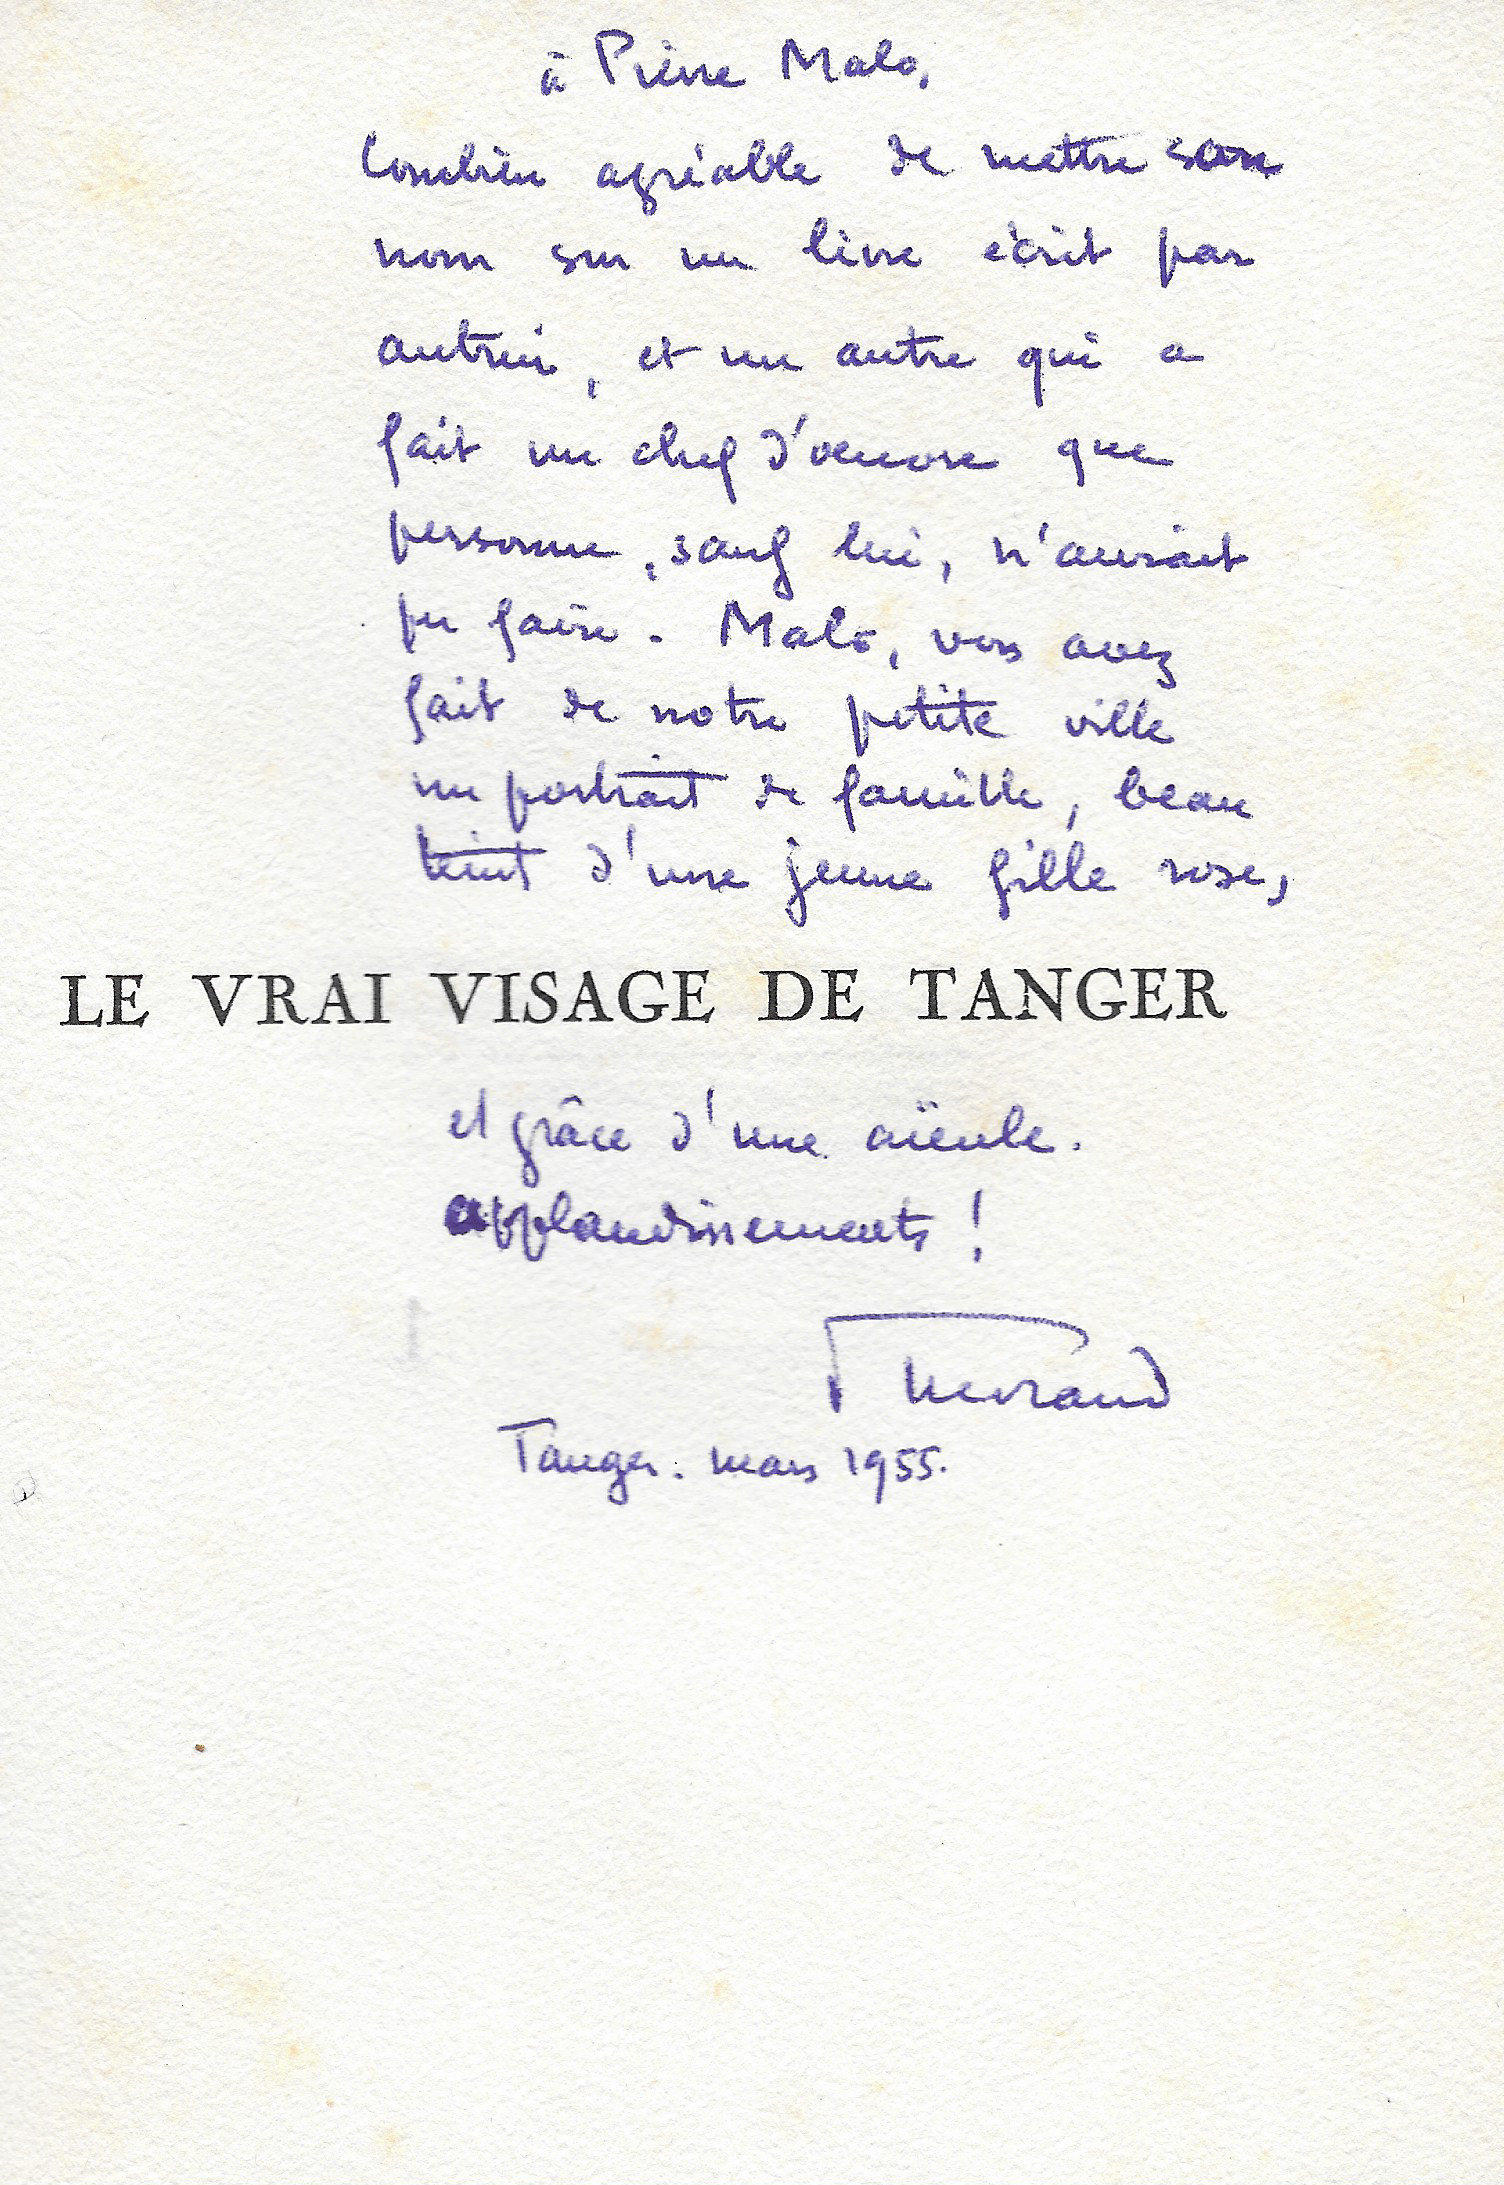 à Pierre Malo,
Combien agréable de mettre son
nom sur un livre écrit par
autrui, et un autre qui a
fait un chef d'œuvre que
personne, sauf lui, n'aurait
pu faire. Malo, vous avez
fait de notre petite ville
un portrait de famille, beau
teint d'une jeune fille rose,
LE VRAI VISAGE DE TANGER
et grâce d'une aïeule.
applaudissements !
P Morand
Tanger. mars 1955.